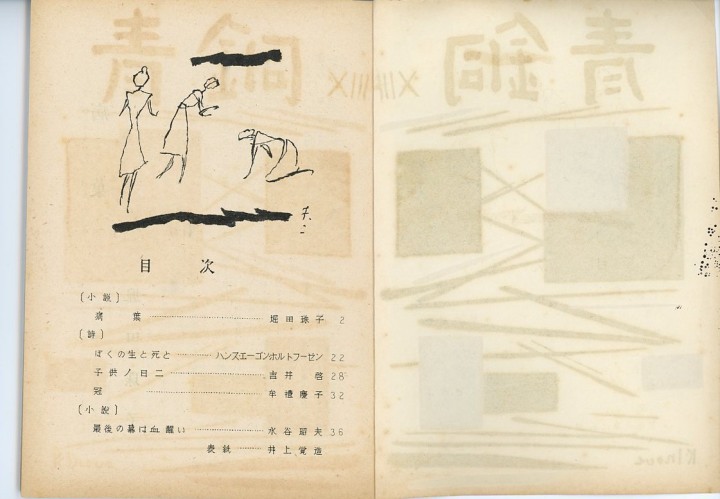 目次
〔小説〕
病葉 ……… 堀田珠子 2
〔詩〕
ぼくの生と死と ……… ハンスエーゴンホルトフーゼン 22
子供ノ日ニ ……… 吉井 啓 28
冠 ……… 牟禮慶子 32
〔小說〕
最後の幕は血醒い ……… 水谷昭夫 36
表紙 ……… 井上覚造
青銅
XIII
青銅